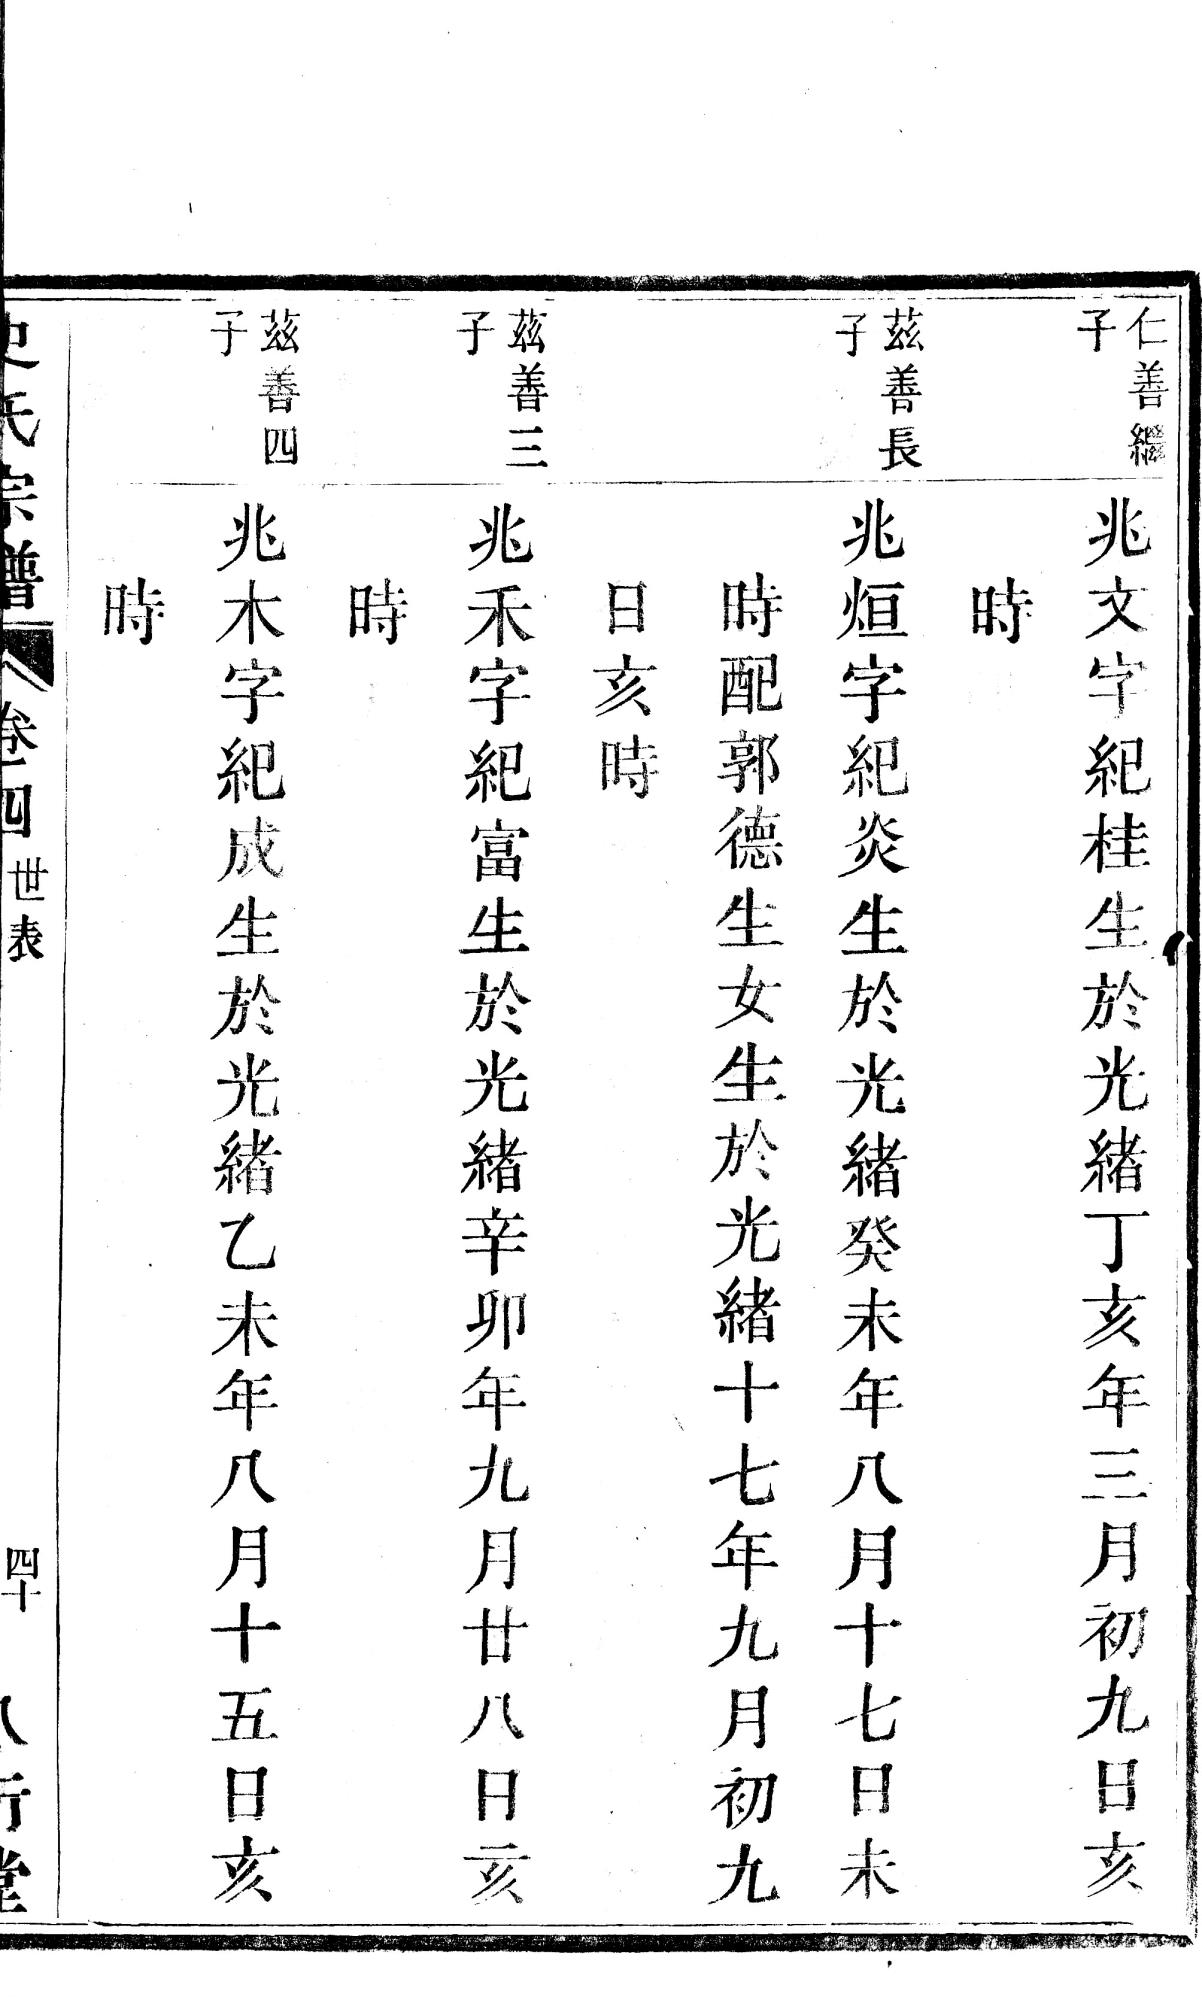 仁善繼
子
兆文字紀桂生於光緒丁亥年三月初九日亥
時
茲善長
子
兆烜字紀炎生於光緒癸未年八月十七日未
時配郭德生女生於光緒十七年九月初九
日亥時
茲善三
子
兆禾字紀富生於光緒辛卯年九月廿八日亥
時
茲善四
子
兆木字紀成生於光緒乙未年八月十五日亥
時
史氏宗譜
卷四
世表
四十
八行堂